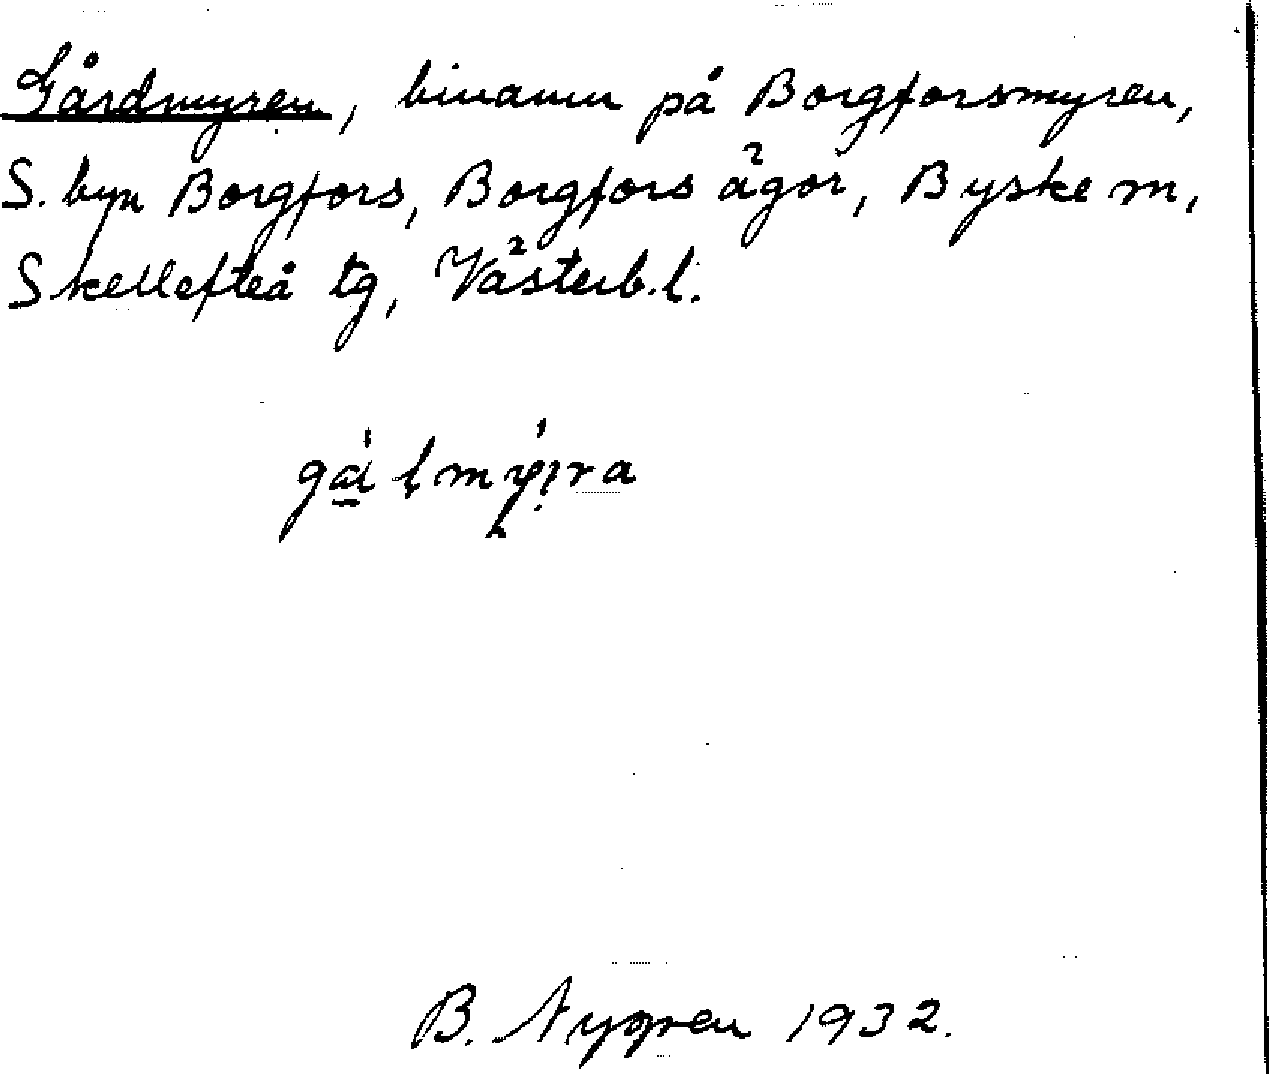 Gårdmyren, binamn på Borgforsmyren,
S. byn Borgfors, Borgfors ägor, Byske sn,
Skellefteå tg, Västerb.l.
B. Nygren 1932.